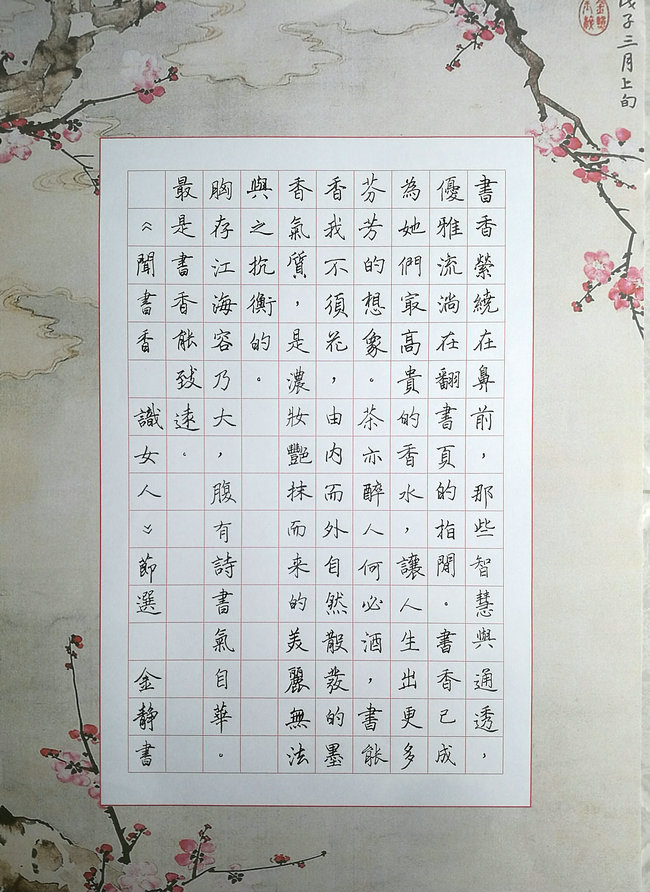 書香縈繞在鼻前，那些智慧與通透，
優雅流淌在翻書頁的指間。書香已成
為她們最高貴的香水，讓人生出更多
芬芳的想象。茶亦醉人何必酒，書能
香我不須花，由內而外自然散發的墨
香氣質，是濃妝艷抹而来的美麗無法
與之抗衡的。
胸存江海容乃大，腹有詩書氣自華。
最是書香能致遠。
《聞書香 識女人》節選 金靜書
戊子三月上旬